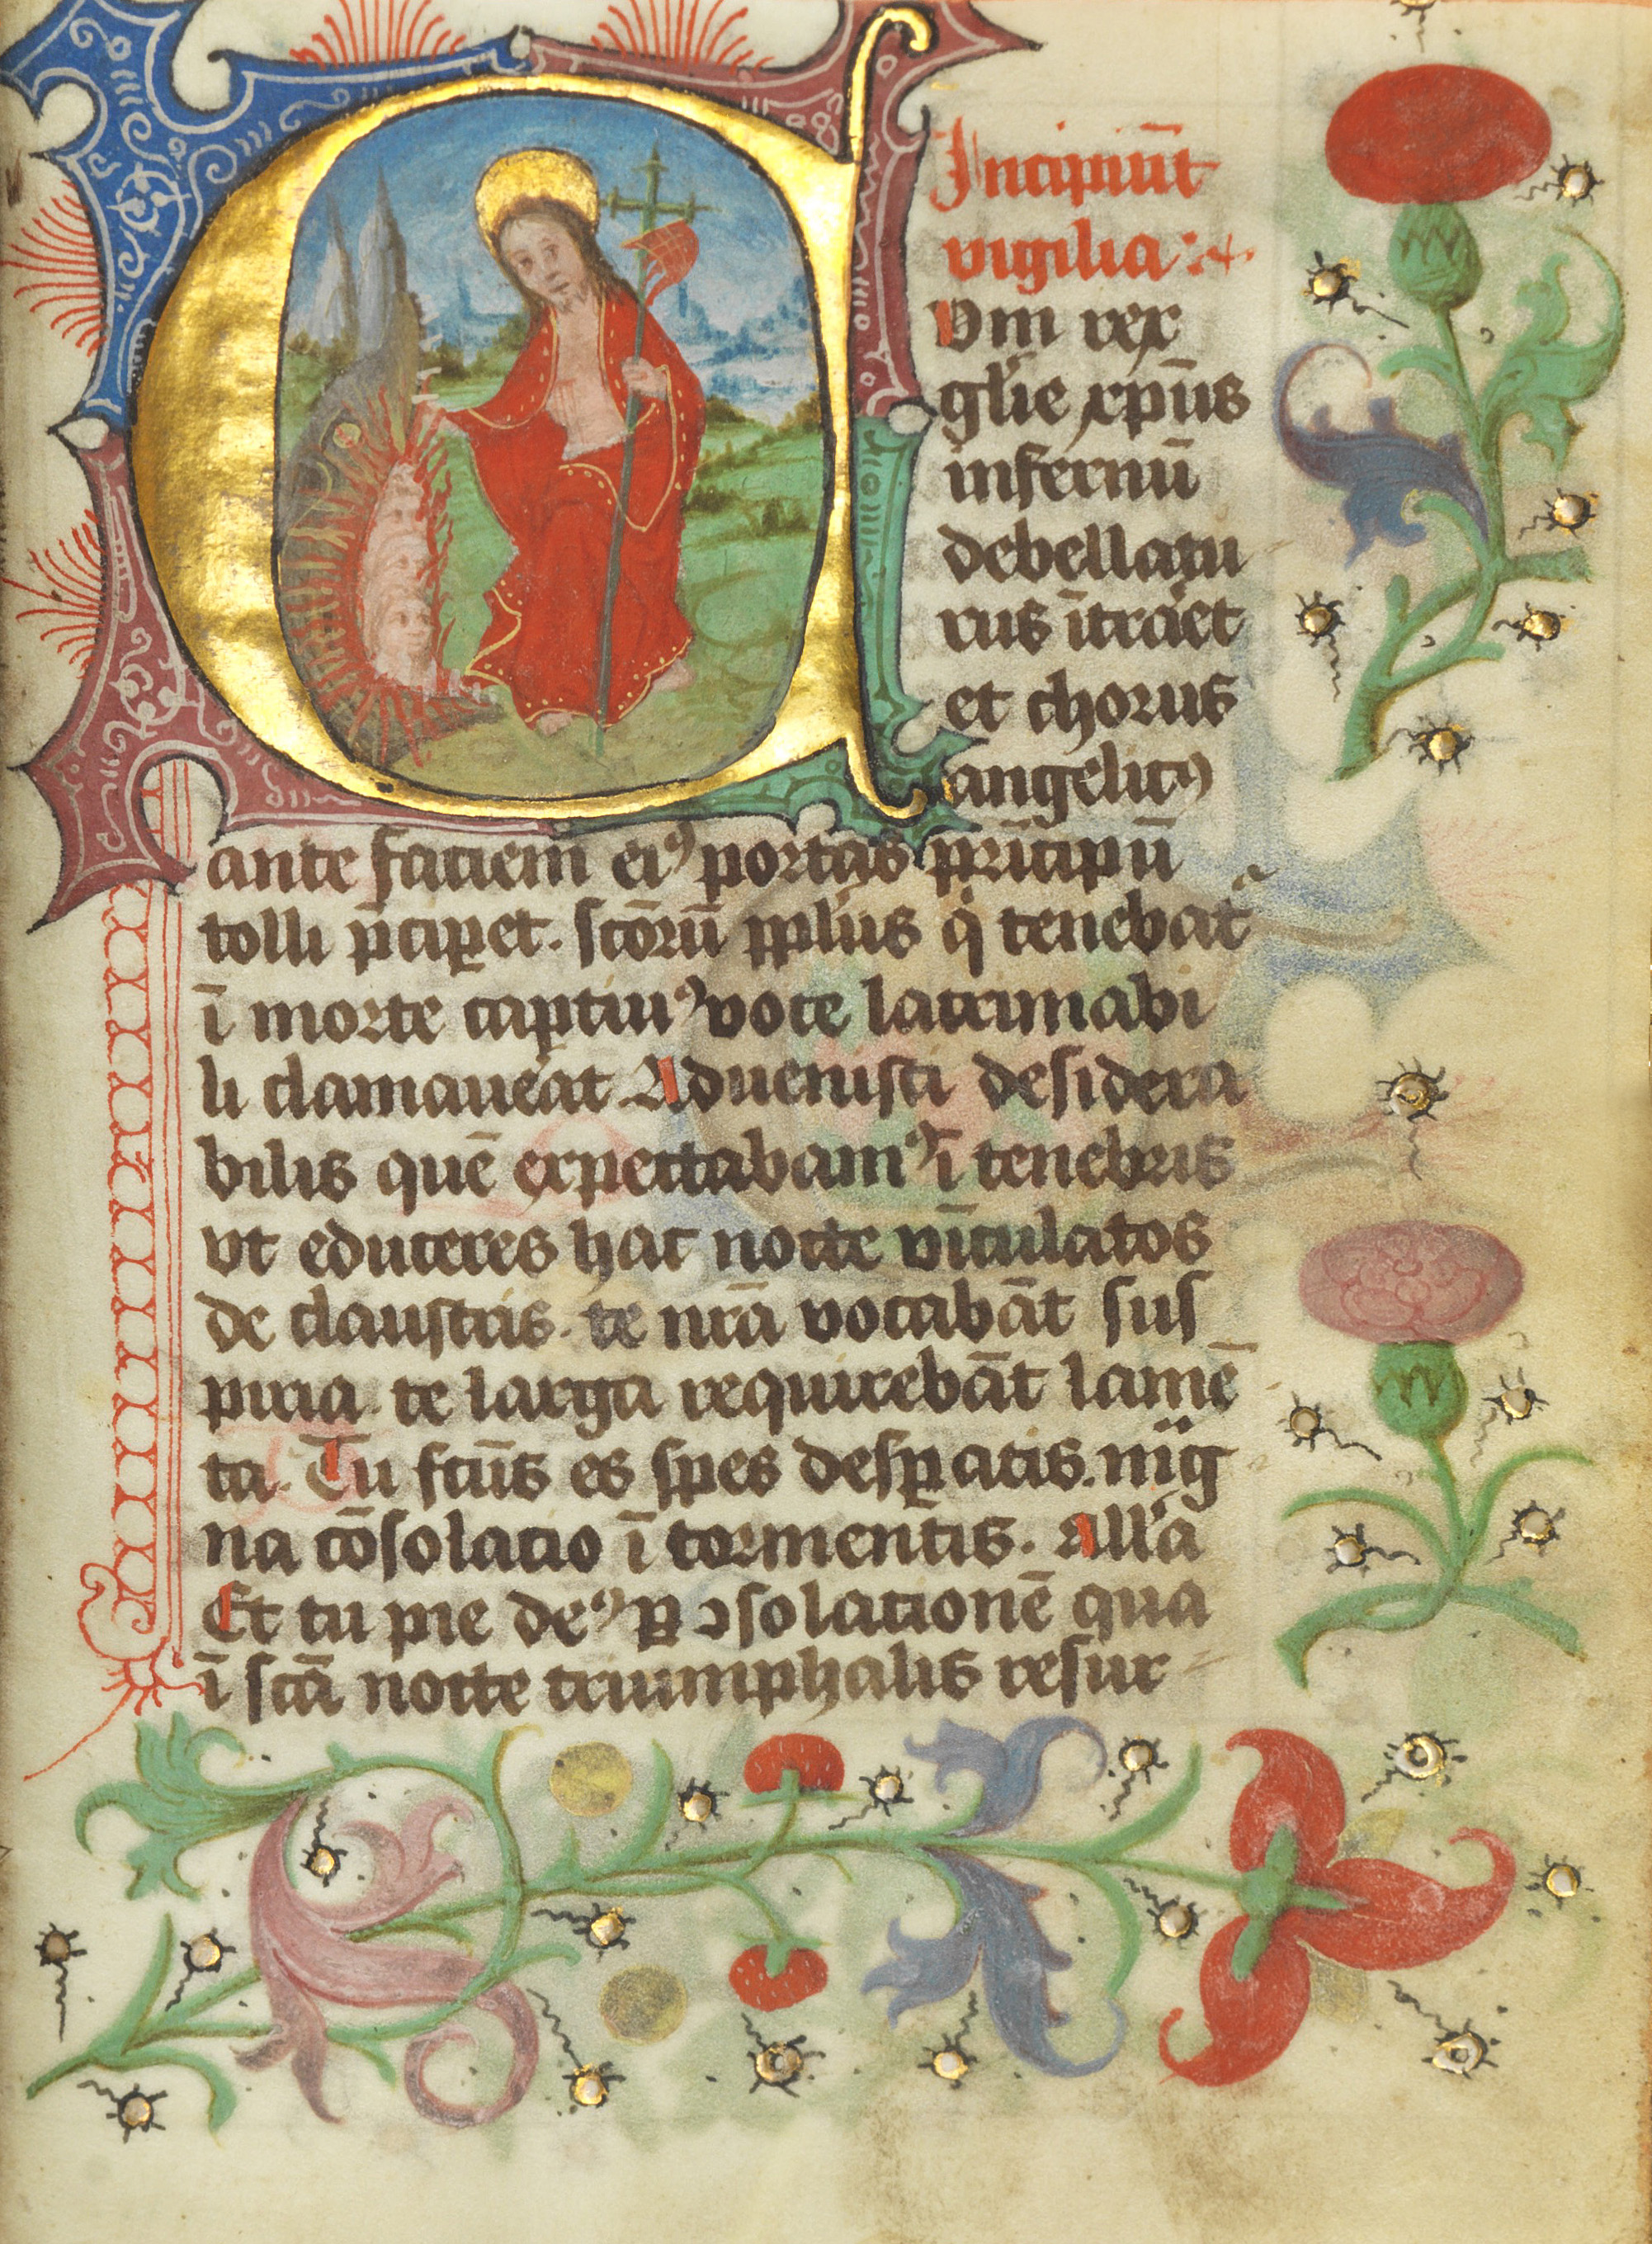 Incipiūt
vigilia
C Vm rex
gl'ie xp̄us
infernū
debellatu
rus ītraret
et chorus
angelicꝰ
ante faciem eiꝰ portas prīcipū
tolli p̄ciꝑet. scōrū ppl'us q' tenebat̄
ī morte captiuꝰ voce lacrimabi
li clamauerat Aduenisti desidera
bilis quē expectabamꝰ ī tenebris
vt educeres hac nocte vīculatos
de claustris. te nrā vocabāt sus
piria. te larga requirebāt lamē
ta. Tu fc̄us es spes desꝑatis. mīg
na cōsolacio ī tormentis. All'a
Et tu pie deꝰ ꝑ ↄsolacionē qua
ī scā nocte triumphalis resur